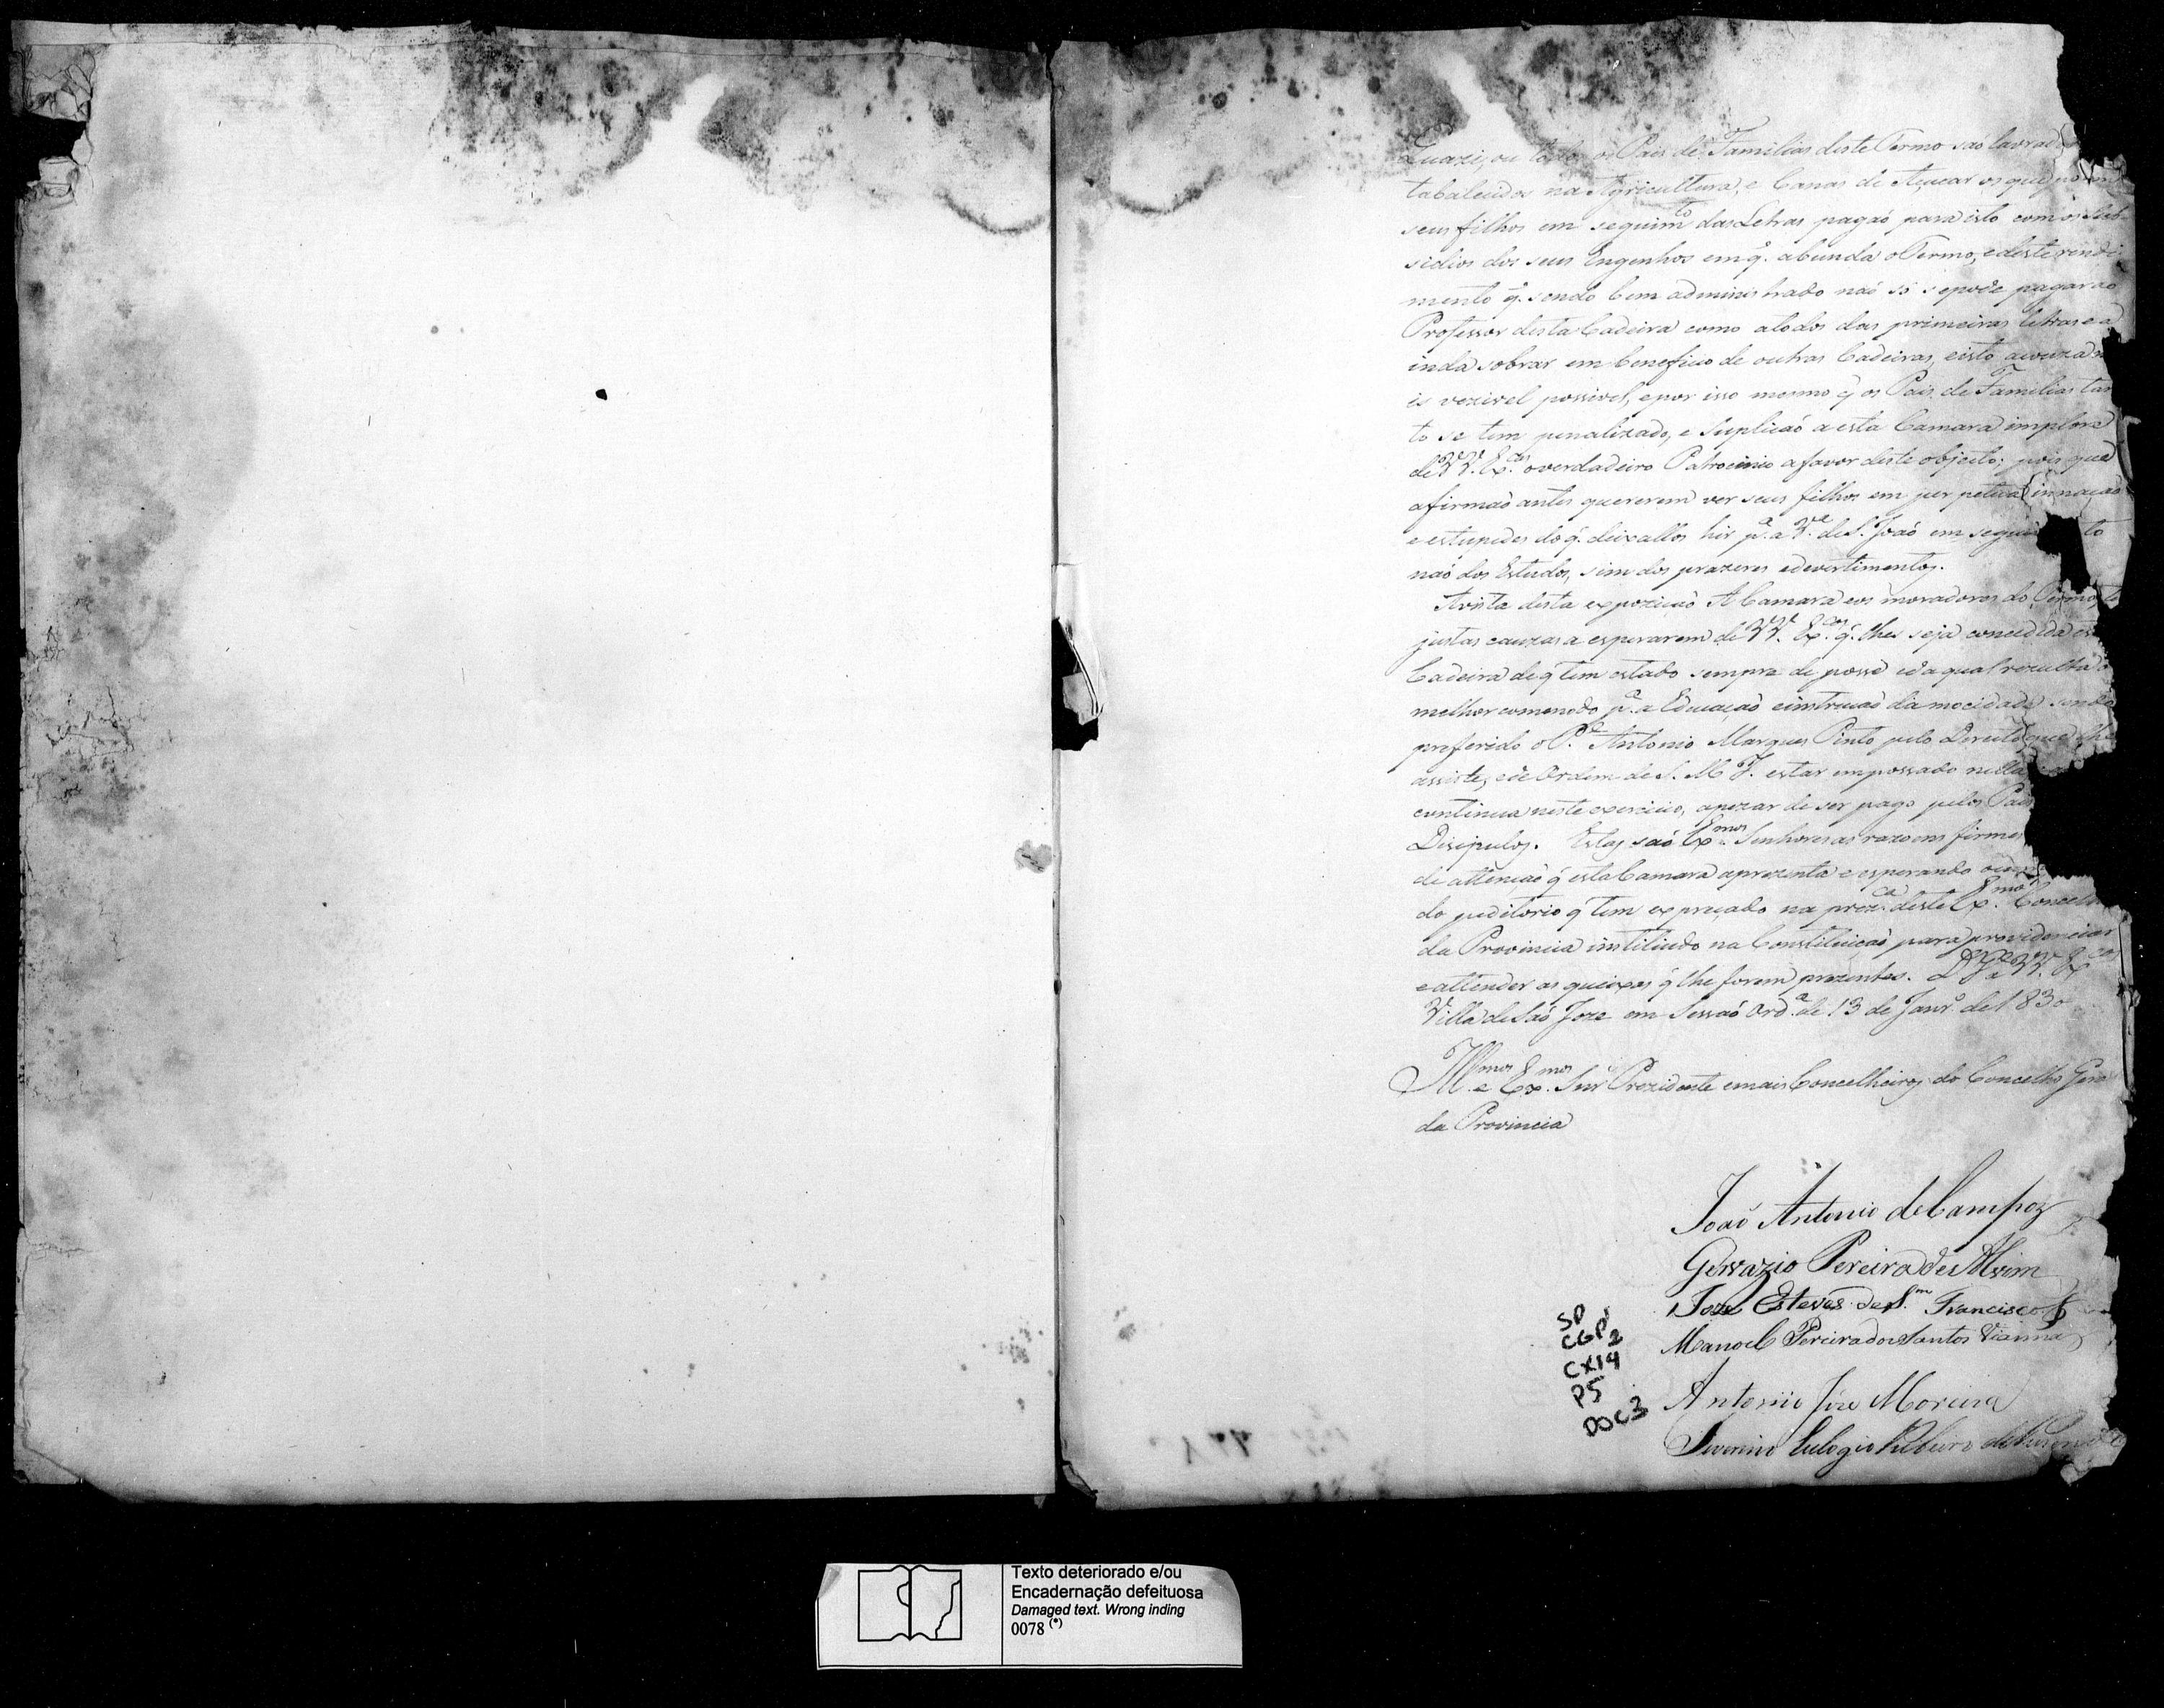 Quazi, ou todos os Pais de Familias deste Termo saó lavrad
tabalecidos na Agricultura, e Canas de Açucar os que
seus filhos em seguimto das Letras pagaó para isto com os Sub-
sidios dos seus Engenhos em q. abunda o Termo, e deste rendi-
mento q. sendo bem administrado naó só se pode pagar ao
Professor desta Cadeira como a todos das primeiras letras e a
inda sobrar em beneficio de outras Cadeiras, e isto
possivel, e por isso mesmo q os Pais de Familias tan
to se tem penalizado, e Suplicaó a esta Camara implora
de VV. Ex.cias o verdadeiro Patrocinio a favor deste objecto; pois que
afirmaó antes quererem ver seus filhos em per petua
e estupides do q. deixallos hir p.a a V.a de S. Joaó em segui to
naó dos Estudos, sim dos prazeres e devertimentos.
Avista desta expozicaó A Camara e os moradores do Termo te
justas cauzas a esperarem de VV. Ex.cas q. lhes seja concedida es
Cadeira de q tem estado sempre de posse e da qual rezulta o
melhor comonodo p.a a Educaçaó e instrucaó da mocidade sendo
preferido o P.e Antonio Marques Pinto pelo Direito que lhe
assiste, e de Ordem de S. M. I. estar empossado nella
continua neste exercicio, apezar de ser pago pelos Pais
Disipulos. Estas saó Ex.mos Senhores as razoens firmes
de attençaó q esta Camara aprezenta e esperando
do peditorio q tem expreçado na prez.ca deste Ex.mo Concelh
da Provincia instituido na Constituiçaó para providenciar
e attender as queixas q lhe forem prezentes. D. G.e a VV. Ex.cas
Villa de Saó Joze em Sessaó Ord.a de 13 de Janr.o de 1830
Ill.mos e Ex.mos Snr Prezidente e mais Concelheiros do Concelho Gera
da Provincia
Joaó Antonio de Campos
Gervazio Pereira de Alvim
Joze Esteves de S.m Francisco
Manoel Pereira dos Santos Vianna
Antonio Józe Moreira
Severino Eulogio Ribeiro de Rezende
SP
CGP1
2
CX14
P5
DOC3
Texto deteriorado e/ou
Encadernação defeituosa
Damaged text. Wrong inding
0078 (*)